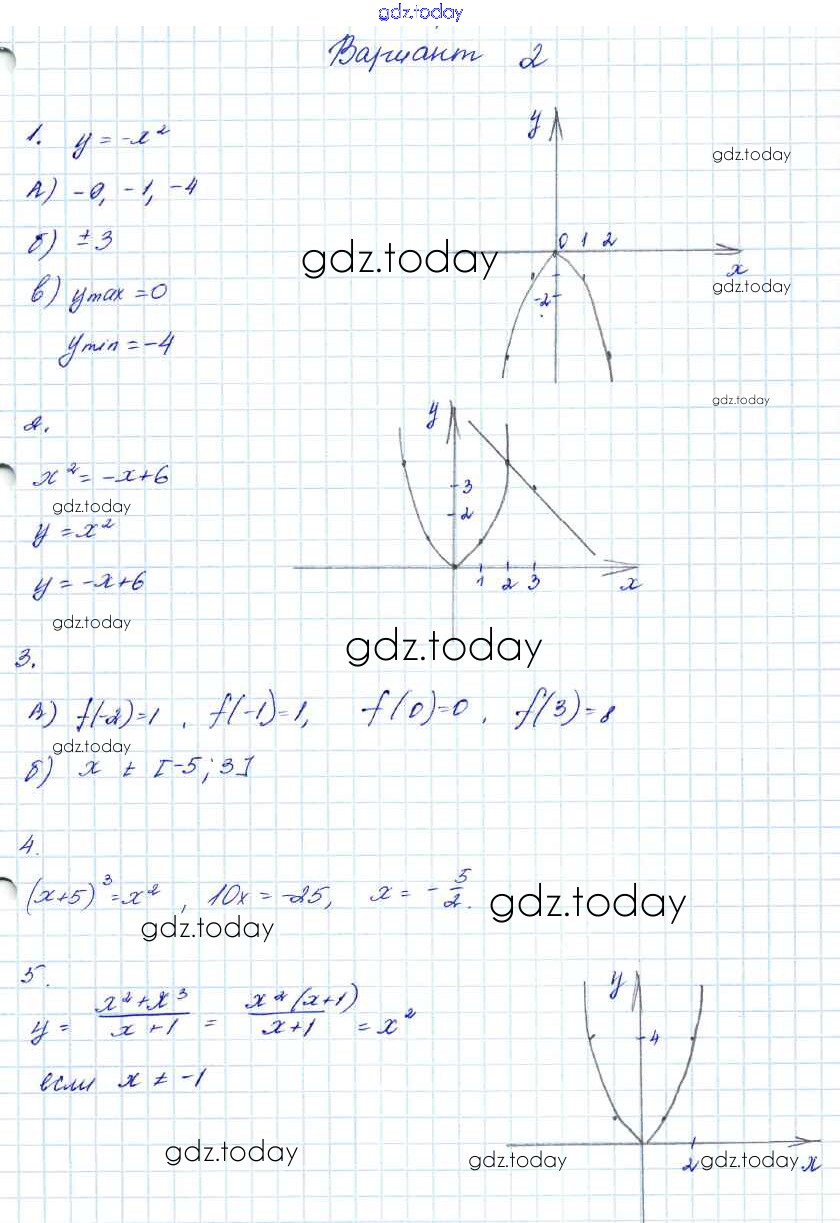 gdz.today
Вариант 2
1. y = -x²
А) -0, -1, -4
б) ±3
в) ymax = 0
ymin = -4
y
0 1 2
x
-2
gdz.today
gdz.today
gdz.today
gdz.today
2.
x² = -x+6
y = x²
y = -x+6
y
3
2
1 2 3
x
gdz.today
gdz.today
gdz.today
3.
f(-2)=1, f(-1)=1, f(0)=0, f(3)=8
б) x ≠ [-5; 3]
gdz.today
4.
(x+5)³=x², 10x = -25, x = -5/2.
gdz.today
gdz.today
5.
y = x²+x³/x+1 = x²(x+1)/x+1 = x²
если x ≠ -1
y
4
2
x
gdz.today
gdz.today
gdz.today